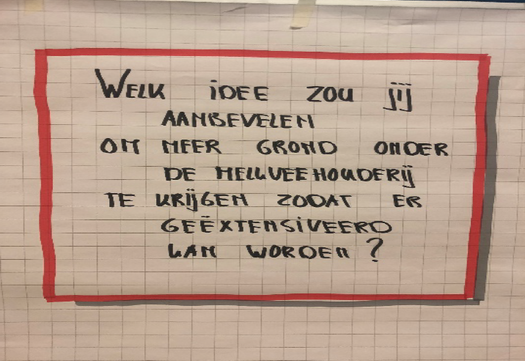 WELK IDEE ZOU JIJ
AANBEVELEN
OM MEER GROND ONDER
DE MELKVEEHOUDERIJ
TE KRIJGEN ZODAT ER
GEËXTENSIVEERD
KAN WORDEN?